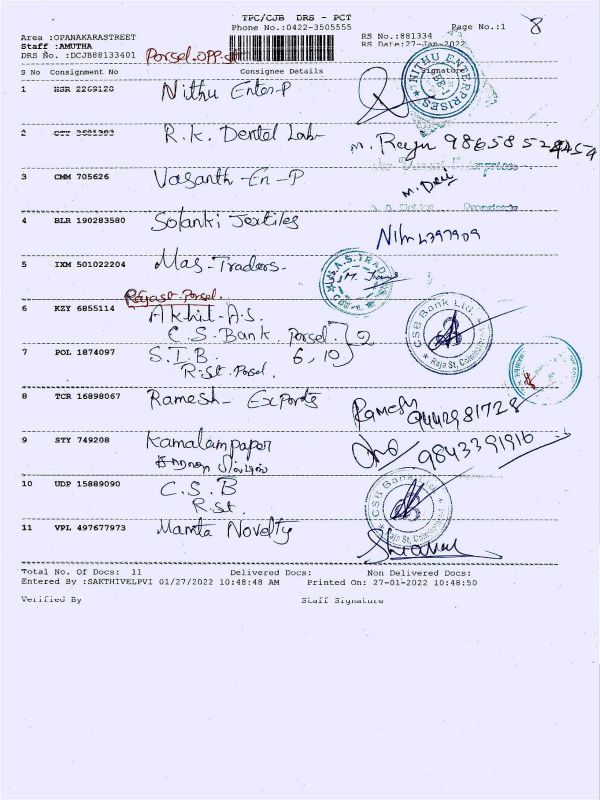 TPC/CJB DRS - PCT
Phone No.:0422-3505555 Page No.:1 8
Area :OPANAKARASTREET RS No.:881334
Staff :AMUTHA RS Date:27-Jan-2022
DRS No. :DCJB88133401 Porsel.opp.
S No Consignment No Consignee Details Signature
NITHU ENTERPRISES
1 HSR 2269120 Nithu Enter-P
2 R.k. Dental Lab- M. Raju
3 CMM 705626 Vasanth-En-P M. Devi
4 BLR 190283580 Solanki Textiles
5 IXM 501022204 Mas-Traders-
M.A.S. TRADERS
Rajast. Porsel.
6 KZY 6855114 Akhil-A.S.
C.S. Bank. Porsel 2
CSB Bank Ltd.
Raja St, Coimbatore
7 POL 1874097 S.I.B. 6, 10
R.St. Porsel.
8 TCR 16898067 Ramesh- Exports Ramesh 9442981728
9 STY 749208 Kamalam paper 9843391916
10 UDP 15889090 C.S.B
R.st.
CSB Bank Ltd.
Raja St, Coimbatore
11 VPL 497677973 Mamta Novelty
Total No. Of Docs: 11 Delivered Docs: Non Delivered Docs:
Entered By :SAKTHIVELPVI 01/27/2022 10:48:48 AM Printed On: 27-01-2022 10:48:50
Verified By Staff Signature